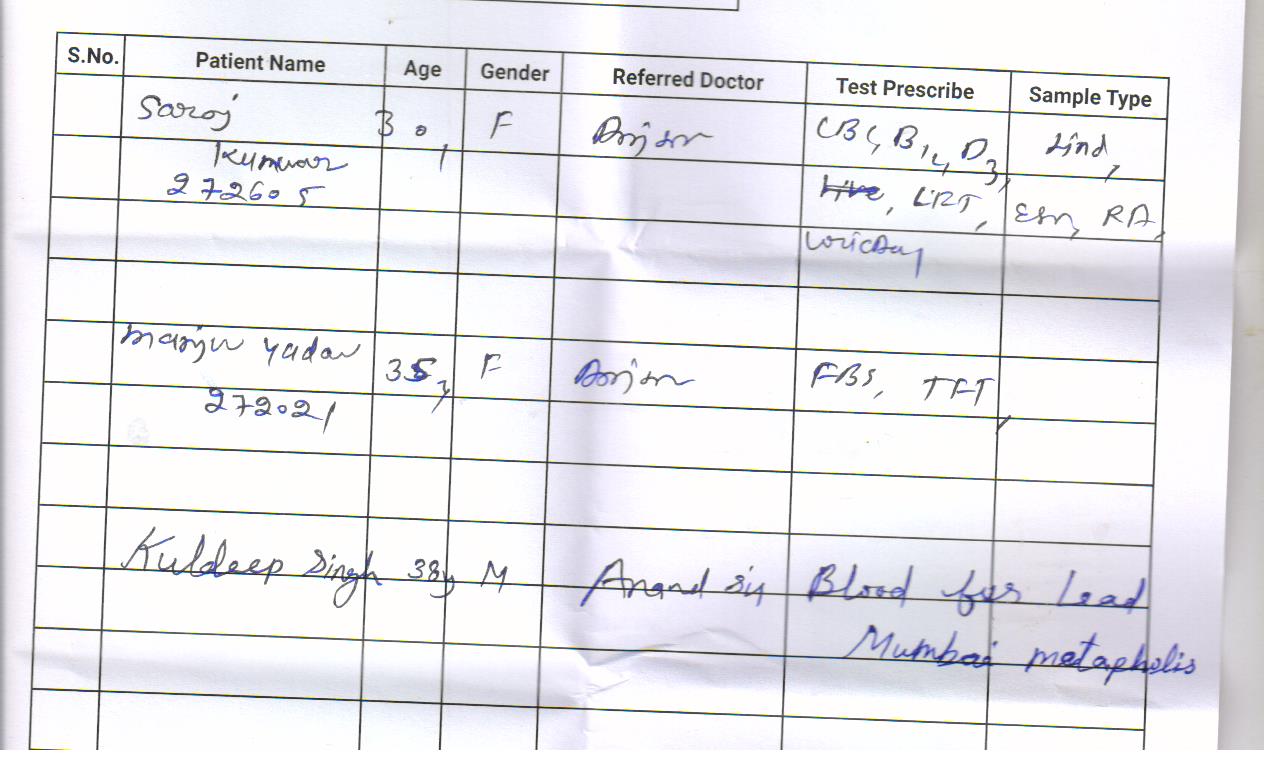 S.No. Patient Name Age Gender Referred Doctor Test Prescribe Sample Type
Saroj 30, F CBC, B12, D3,
Kumwar LRT, ESR, RA,
272605
Manju Yadav 35y F FBS, TFT,
272021
Kuldeep Singh 38y M Anand Sir Blood for Lead
Mumbai metapholis